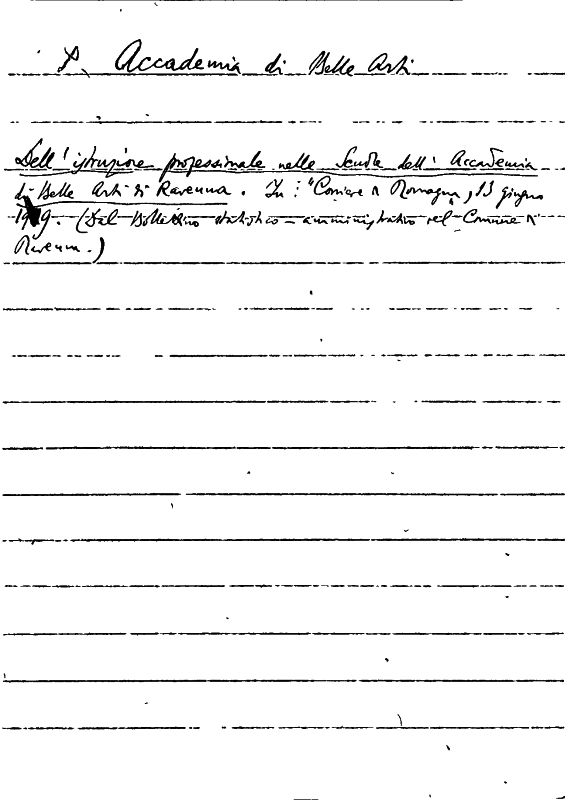 Accademia di Belle Arti
Dell'istruzione professionale nelle Scuole dell'Accademia
di Belle Arti di Ravenna. In: "Corriere di Romagna", 13 giugno
(Dal Bollettino statistico-amministrativo del Comune di
Ravenna.)